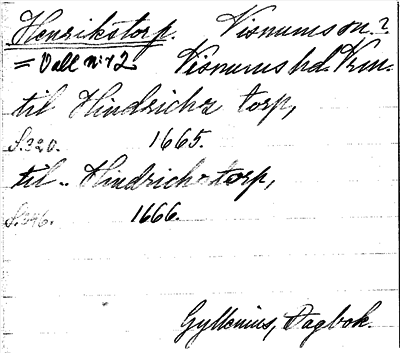 Henrikstorp. Visnums sn.?
= Vall nr 2. Visnums hd. Vrm.
til Hindrichz torp,
S. 320. 1665.
til.. Hindrichstorp,
S. 346. 1666.
Gyllenius, Dagbok.